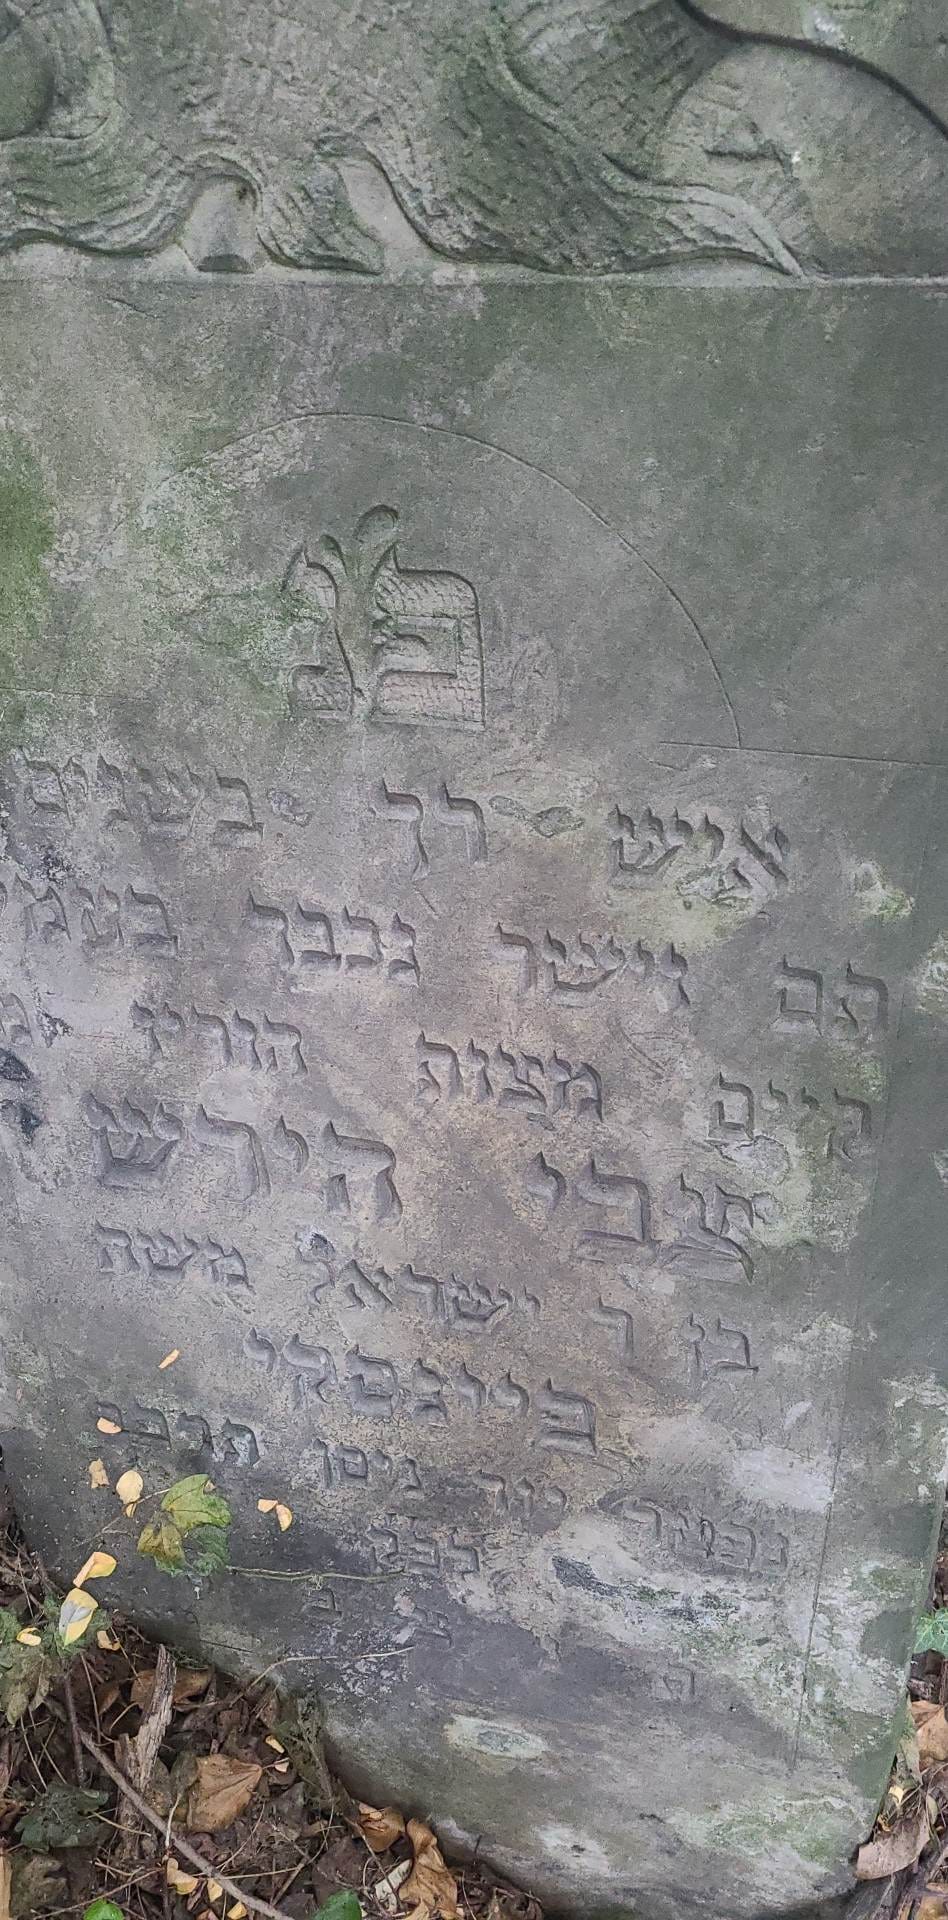 פנ
איש רך בשנים
תם וישר נכבד
קיים מצות הוריו
צבי הירש
בן ר ישראל משה
פיינסקי
נפטר יוד ניסן
לפק
ת נ צ ב ה